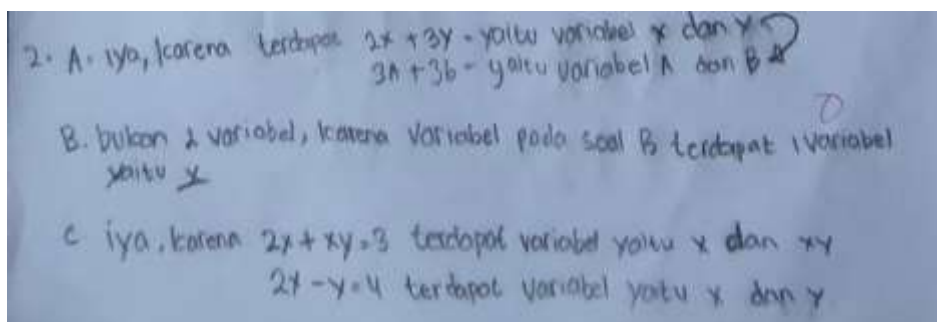 2. A. iya, karena terdapat 2x + 3y - yaitu variabel x dan y
3A + 3b - yaitu variabel A dan B
B. bukan 2 variabel, karena variabel pada soal B terdapat 1 variabel
yaitu y
C iya, karena 2x + xy = 3 terdapat variabel yaitu x dan xy
2x - y = 4 terdapat variabel yaitu x dan y